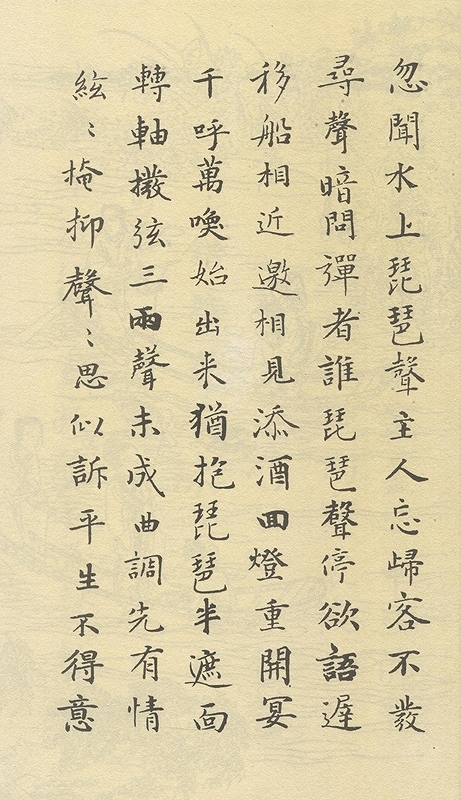 忽聞水上琵琶聲主人忘歸客不發
尋聲暗問彈者誰琵琶聲停欲語遲
移船相近邀相見添酒回燈重開宴
千呼萬喚始出来猶抱琵琶半遮面
轉軸撥弦三兩聲未成曲調先有情
絃〻掩抑聲〻思似訴平生不得意